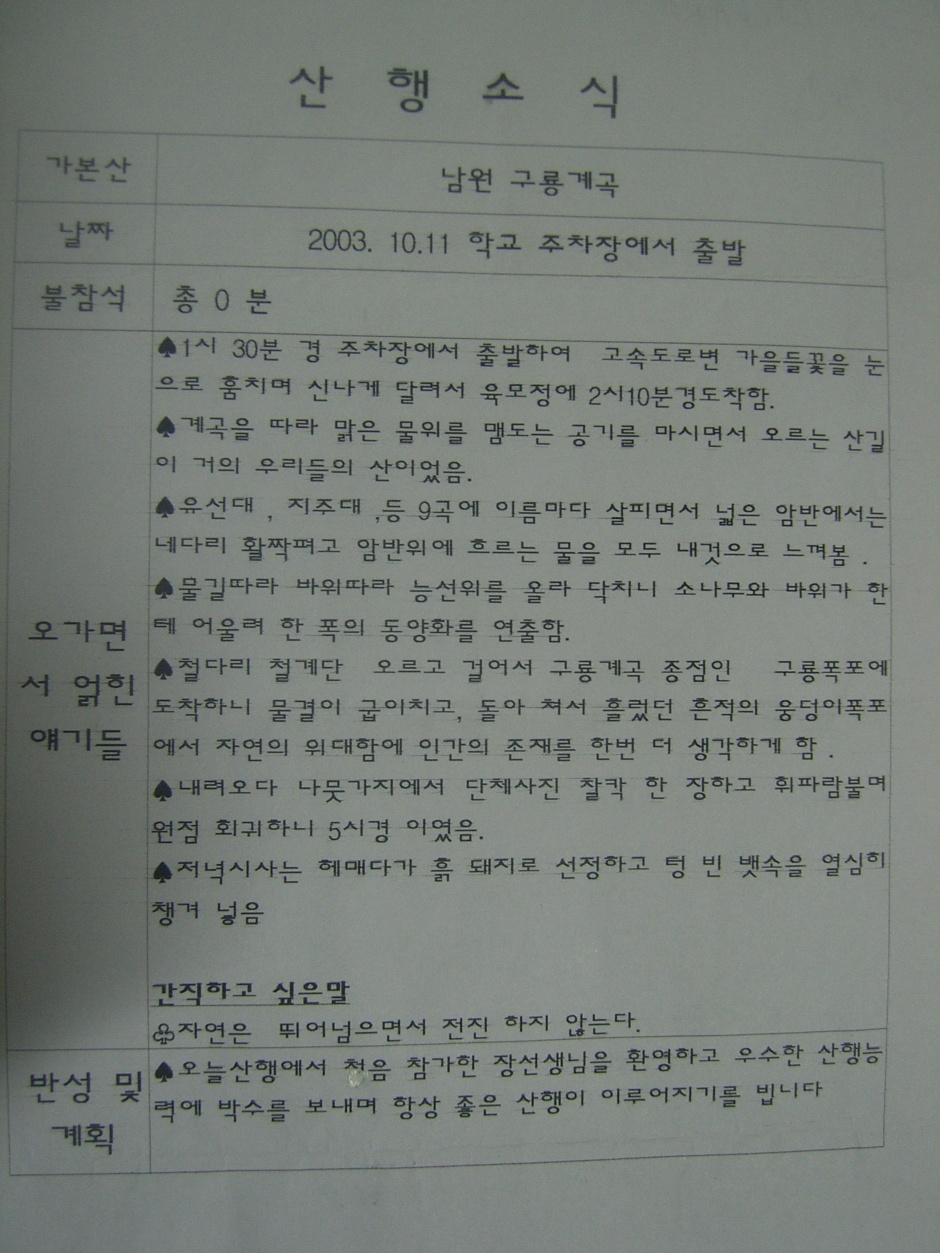 산 행 소 식
가본산
남원 구룡계곡
날짜
2003. 10.11 학교 주차장에서 출발
불참석
총 0 분
오가면
서 얽힌
얘기들
♠1시 30분 경 주차장에서 출발하여 고속도로변 가을들꽃을 눈
으로 훔치며 신나게 달려서 육모정에 2시10분경도착함.
♠계곡을 따라 맑은 물위를 맴도는 공기를 마시면서 오르는 산길
이 거의 우리들의 산이었음.
♠유선대 , 지주대 ,등 9곡에 이름마다 살피면서 넓은 암반에서는
네다리 활짝펴고 암반위에 흐르는 물을 모두 내것으로 느껴봄 .
♠물길따라 바위따라 능선위를 올라 닥치니 소나무와 바위가 한
테 어울려 한 폭의 동양화를 연출함.
♠철다리 철계단 오르고 걸어서 구룡계곡 종점인 구룡폭포에
도착하니 물결이 굽이치고, 돌아 쳐서 흘렀던 흔적의 웅덩이폭포
에서 자연의 위대함에 인간의 존재를 한번 더 생각하게 함 .
♠내려오다 나뭇가지에서 단체사진 찰칵 한 장하고 휘파람불며
원점 회귀하니 5시경 이였음.
♠저녁시사는 헤매다가 흙 돼지로 선정하고 텅 빈 뱃속을 열심히
챙겨 넣음
간직하고 싶은말
♧자연은 뛰어넘으면서 전진 하지 않는다.
반성 및
계획
♠오늘산행에서 처음 참가한 장선생님을 환영하고 우수한 산행능
력에 박수를 보내며 항상 좋은 산행이 이루어지기를 빕니다